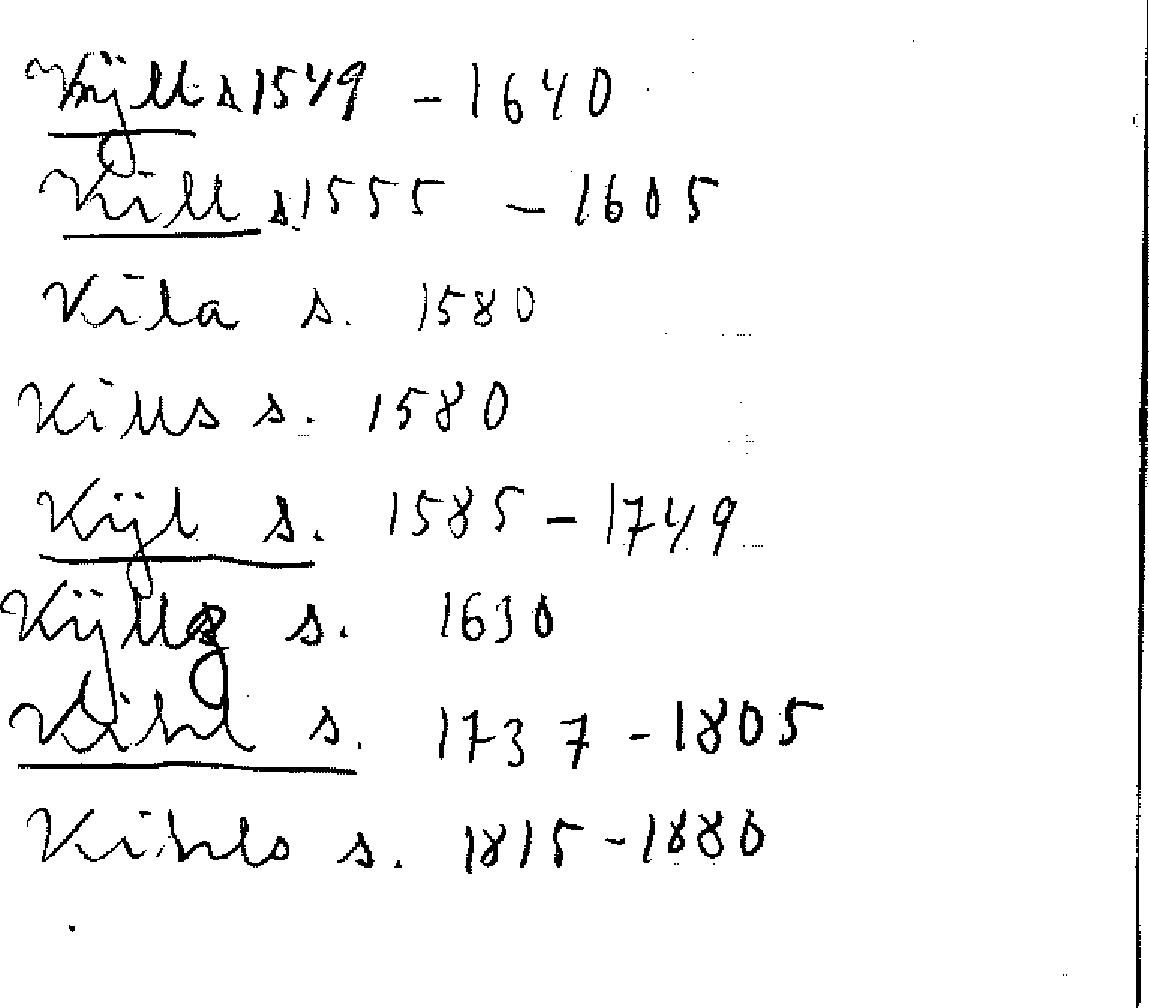 Kÿll s 1549 - 1640
Kill s. 1555 - 1605
Kila s. 1580
Kills s. 1580
Kijl s. 1585 - 1749
Kÿlls s. 1630
Kihl s. 1737 - 1805
Kihls s. 1815 - 1880